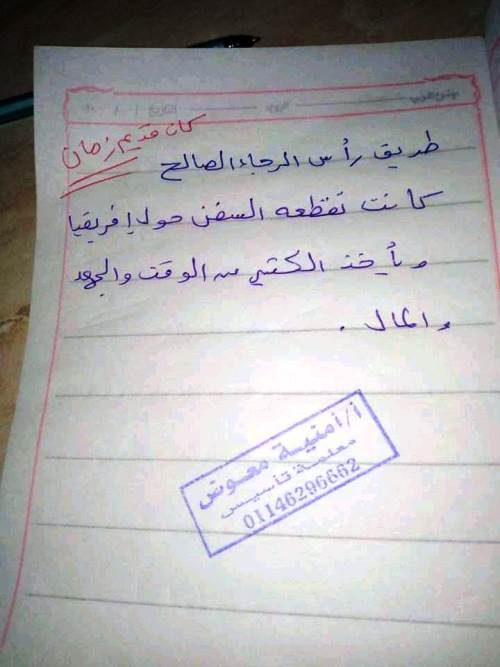 كان قديم زمان
طريق رأس الرجاء الصالح
كانت تقطعه السفن حول إفريقيا
و يأخذ الكثير من الوقت والجهد
و المال .
أ/ أمنية معوض
معلمة تأسيس
01146296662